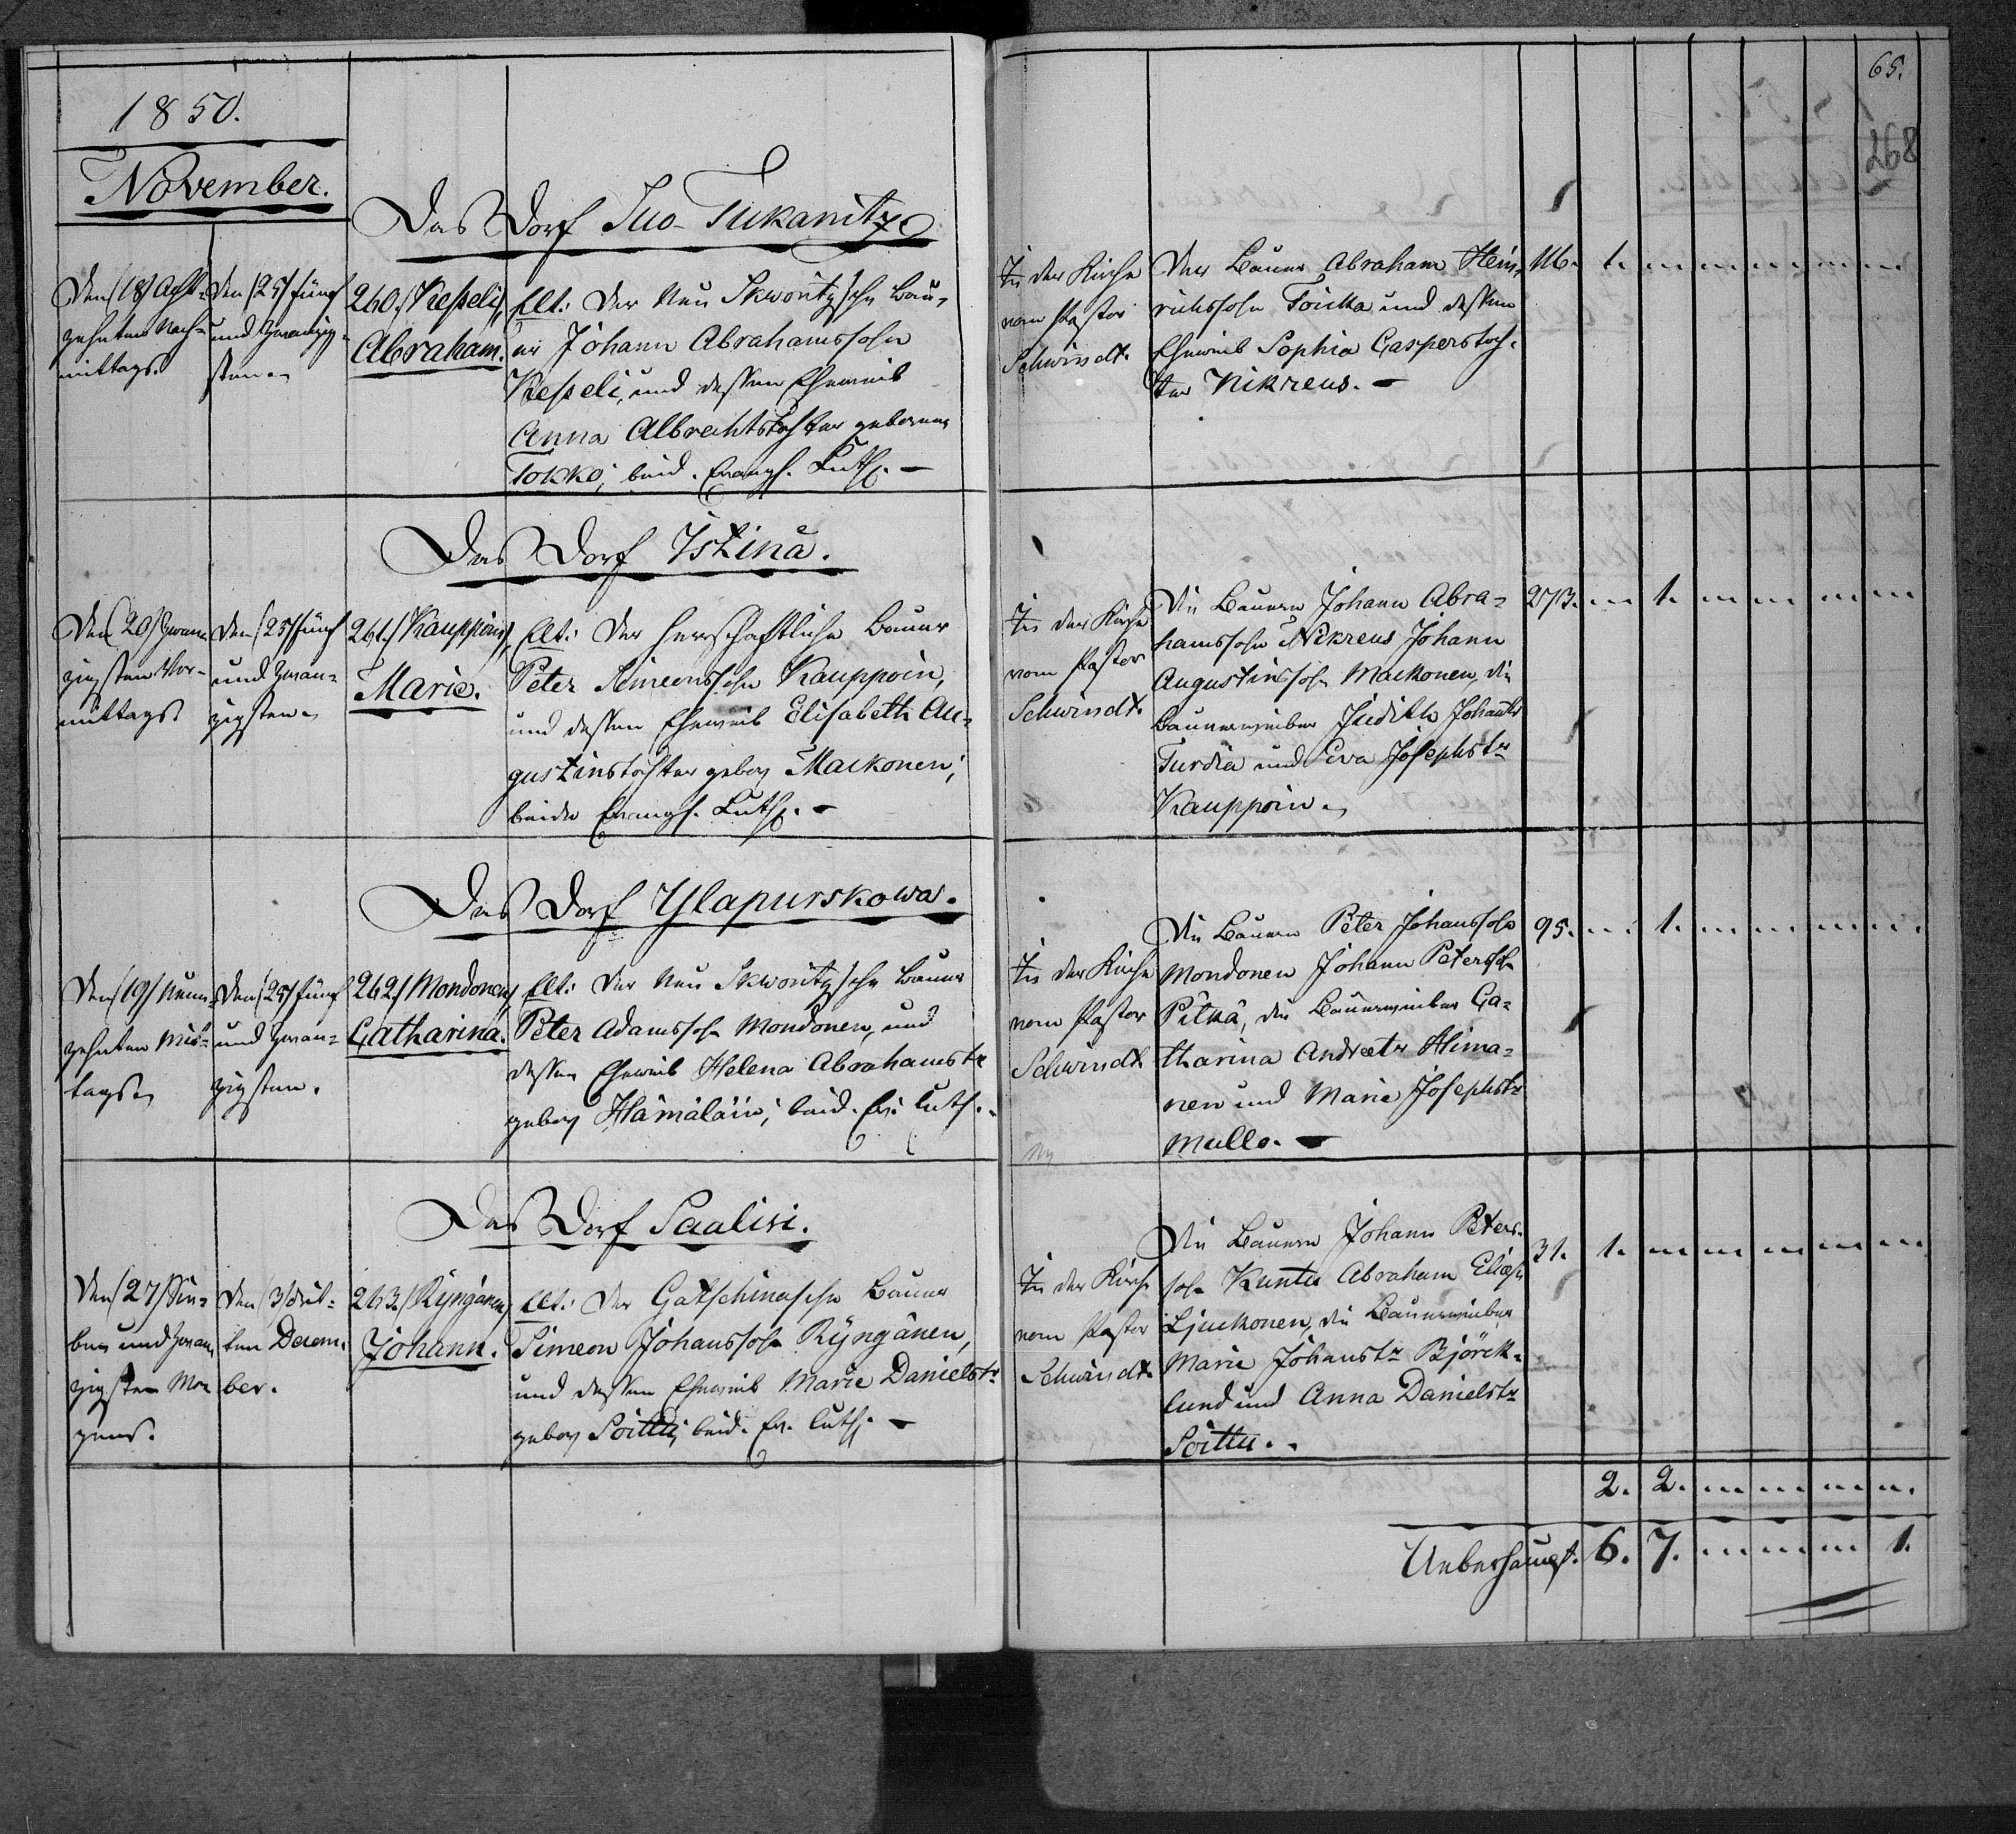 1850.
November.
65.
268
Das Dorf Suo-Tukanitz
Den /18/ Acht-
zehnten Nach-
mittags.
Den /25/ fünf
und zwanzig-
sten.
260./ Kesseli,
Abraham.
Elt: Der Neu Skworitzsche Bau-
er Johann Abrahamssohn
Kesseli, und dessen Eheweib
Anna Albrechtstochter geborene
Tokko; beid. Evangl. Luth. –
In der Kirche
vom Pastor
Schwindt.
Der Bauer Abraham Hein-
richssohn Toikka und dessen
Eheweib Sophia Casperstoch-
ter Nikreus. –
116.
1.
Das Dorf Istinä.
Den /20/ Zwan-
zigsten Vor-
mittags
Den /25/ fünf
und zwan-
zigsten.
261./ Kauppoin,
Marie.
Elt: Der herrschaftliche Bauer
Peter Simeonssohn Kauppoin,
und dessen Eheweib Elisabeth Au-
gustinstochter gebor. Maikonen;
beide Evangl. Luth. –
In der Kirche
vom Pastor
Schwindt.
Die Bauern Johann Abra-
hamssohn Nikreus Johann
Augustinssoh. Maikonen, die
Bauerweiber Judith Johanstr
Turdia und Eva Josephstr
Kauppoin.
273.
1.
Das Dorf Ylapurskowa.
Den /19/ Neun-
zehnten Mit-
tags.
Den /25/ fünf
und zwan-
zigsten.
262./ Mondonen,
Catharina.
Elt: Der Neu Skworitzsche Bauer
Peter Adamssoh. Mondonen, und
dessen Eheweib Helena Abrahamstr
gebor. Hämäläin; beid. Ev. Luth.
In der Kirche
vom Pastor
Schwindt
Die Bauern Peter Johanssohn
Mondonen Johann Peterssoh.
Pitkä, die Bauerweiber Ca-
tharina Andreetr Hima-
nen und Marie Josephstr
Mullo. –
95.
1.
Das Dorf Saalisi.
Den /27/ Sie-
ben und zwan-
zigsten Mor-
gens.
Den /3/ drit-
ten Decem-
ber.
263./ Ryngänen,
Johann.
Elt: Der Gatschinasche Bauer
Simeon Johanssoh. Ryngänen,
und dessen Eheweib Marie Danielstr
gebor. Soittu; beid. Ev. Luth. –
In der Kirche
vom Pastor
Schwindt.
Die Bauern Johann Peters-
soh. Kuntu Abraham Eliass.
Ljuckonen, die Bauerweiber
Marie Johanstr Björck-
lund und Anna Danielstr
Soittu.
31.
1.
2. 2.
Ueberhaupt. 6. 7. 1.